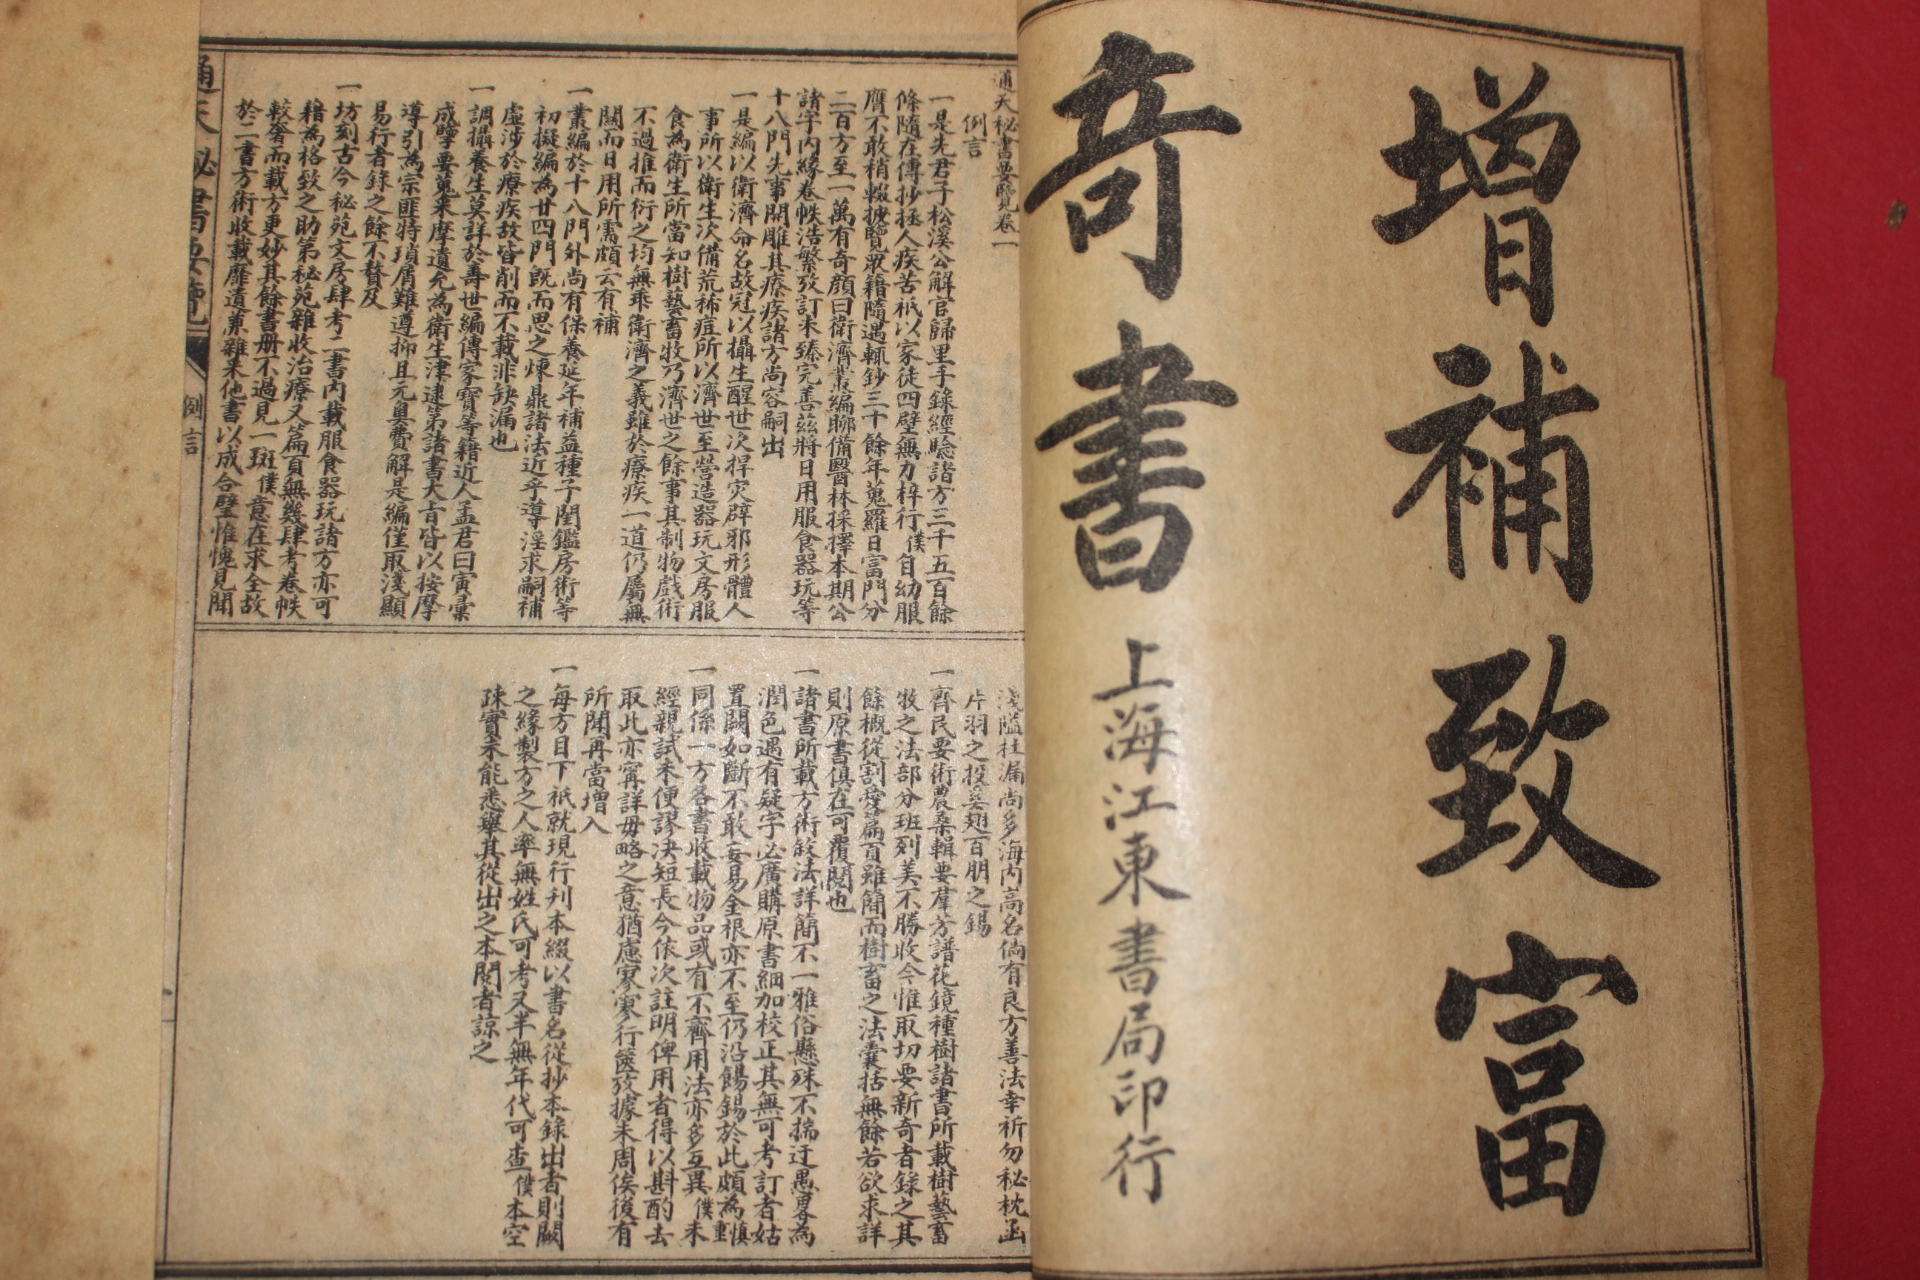 增補致富
奇書
上海江東書局印行
通天秘書要覽卷一
例言
一是先君子松溪公解官歸里手錄經驗諸方三千五百餘
條隨在傳抄拯人疾苦祇以家徒四壁無力梓行僕自幼服
膺不敢稍輟披覽眾籍隨遇輒鈔三十餘年蒐羅日富門分
二百方至一萬有奇顏曰衛濟叢編聊備醫林採擇本期公
諸宇內緣卷帙浩繁攷訂未臻完善茲將日用服食器玩等
十八門先事開雕其療疾諸方尚容嗣出
一是編以衛濟命名故冠以攝生醒世次捍灾辟邪形體人
事所以衛生次備荒稀痘所以濟世至營造器玩文房服
食為衛生所當知樹藝畜牧乃濟世之餘事其制物戲術
不過推而衍之均無乖衛濟之義雖於療疾一道仍屬無
關而日用所需頗云有補
一叢編於十八門外尚有保養延年補益種子閨鑑房術等
初擬編為廿四門既而思之煉鼎諸法近乎導淫求嗣補
虛涉於療疾故皆削而不載非缺漏也
一調攝養生莫詳於壽世編傳家寶等籍近人孟君曰寅彙
成孽要蒐采摩遺允為衛生津逮第諸書大旨皆以按摩
導引為宗匪特瑣屑難遵抑且元奧費解是編僅取淺顯
易行者錄之餘不贅及
一坊刻古今秘苑文房肆考二書內載服食器玩諸方亦可
藉為格致之助第秘苑雜收治療又篇頁無幾肆考卷帙
較奢而載方更妙其餘書册不過見一斑僕意在求全故
於二書方術收載靡遺兼雜采他書以成合璧惟愧見聞
淺隘挂漏尚多海內高名倘有良方善法幸祈勿秘枕函
片羽之投奚翅百朋之錫
一齊民要術農桑輯要羣芳譜花鏡種樹諸書所載樹藝畜
牧之法部分班列美不勝收今惟取切要新奇者錄之其
餘概從割愛篇頁雖簡而樹畜之法囊括無餘若欲求詳
則原書俱在可覆閱也
一諸書所載方術敘法詳簡不一雅俗懸殊不揣迂愚畧為
潤色遇有疑字必廣購原書細加校正其無可考訂者姑
置闕如斷不敢妄易金根亦不至仍沿餳錫於此頗為慎重
一同係一方各書收載物品或有不齊用法亦多互異僕未
經親試未便謬決短長今依次註明俾用者得以斟酌去
取此亦寧詳毋略之意猶慮家寒行篋攷據未周俟後有
所聞再當增入
一每方目下祇就現行刋本綴以書名從抄本錄出者則闕
之緣製方之人率無姓氏可考又半無年代可查僕本空
疎實未能悉舉其從出之本閱者諒之
通天秘書要覽
例言
一